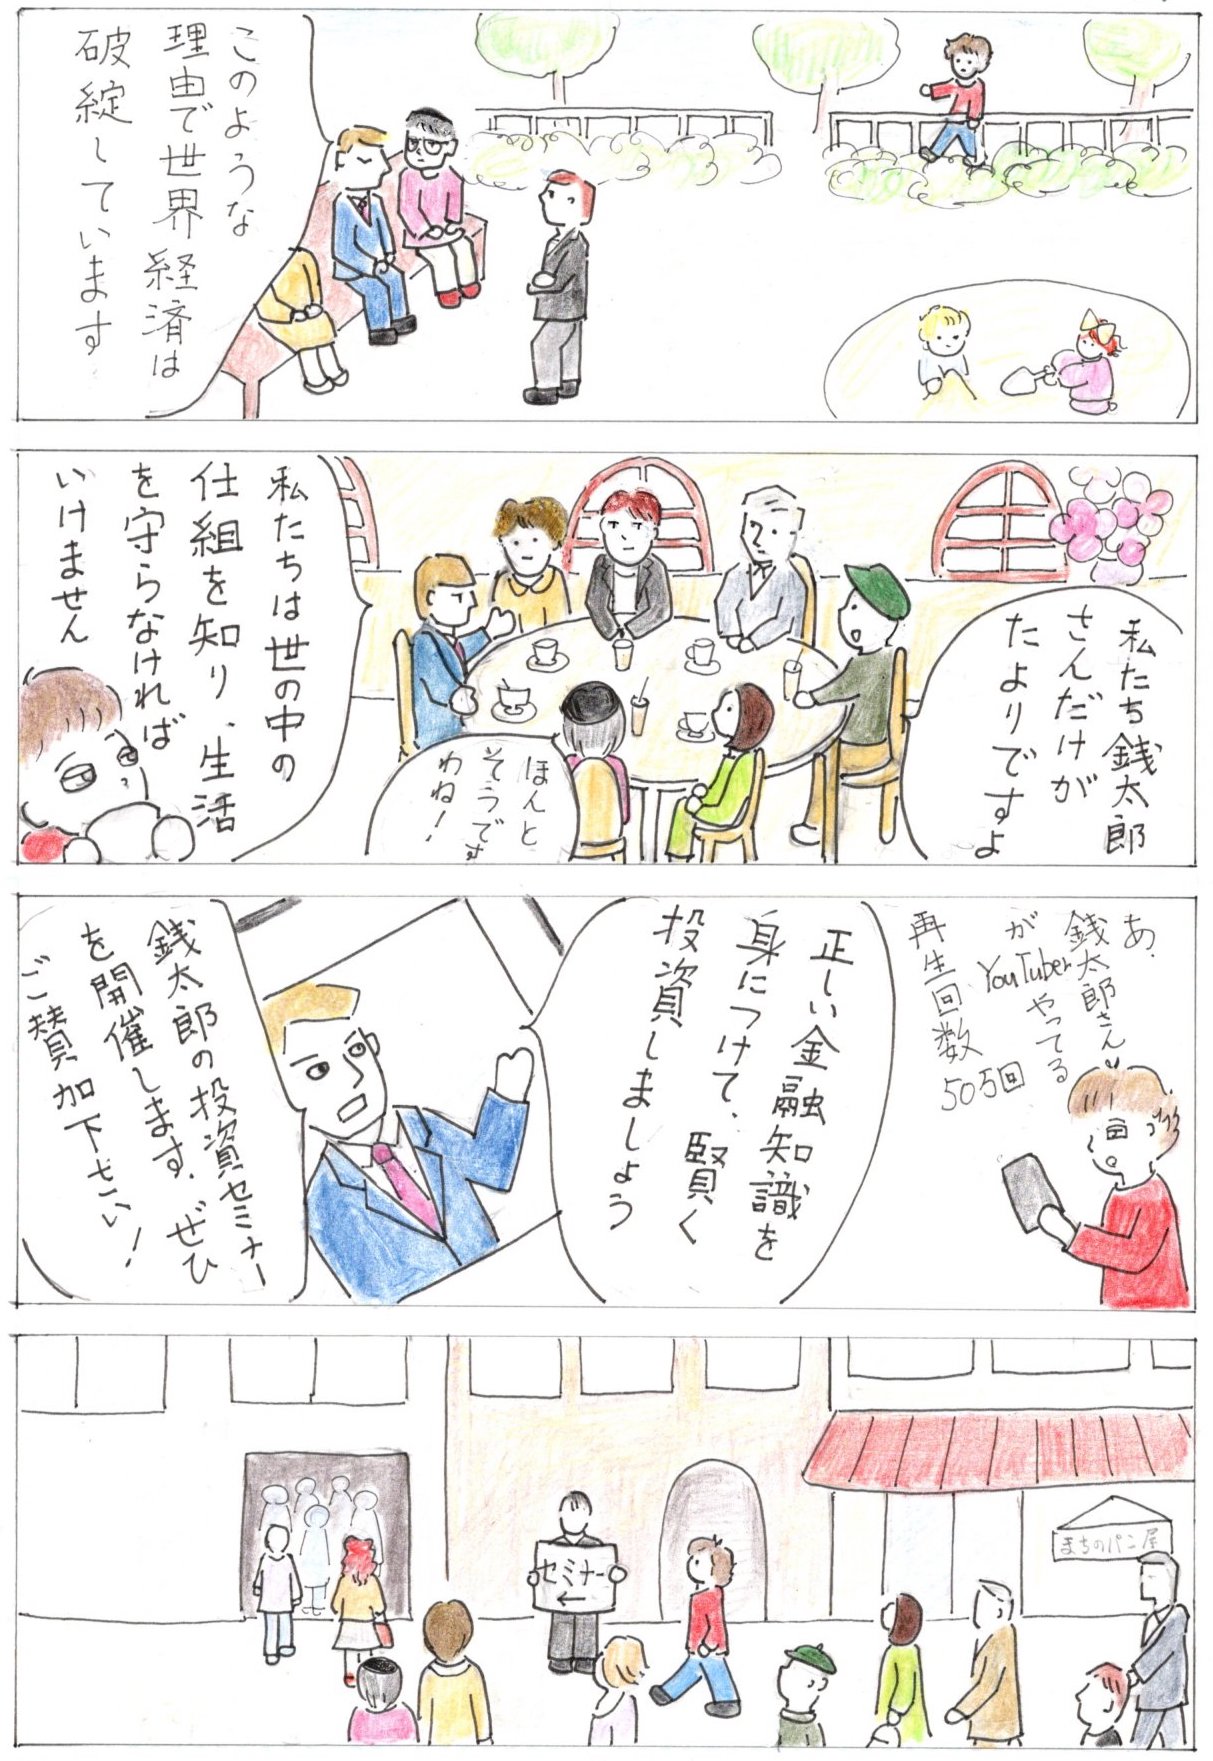 このような
理由で世界経済は
破綻しています
私たち銭太郎
さんだけが
たよりですよ
ほんと
そうです
わね！
私たちは世の中の
仕組を知り、生活
を守らなければ
いけません
あ、
銭太郎さん
がYouTuberやってる
再生回数
505回
正しい金融知識を
身につけて、賢く
投資しましょう
銭太郎の投資セミナー
を開催します。ぜひ
ご賛加下さい！
セミナー
←
まちのパン屋